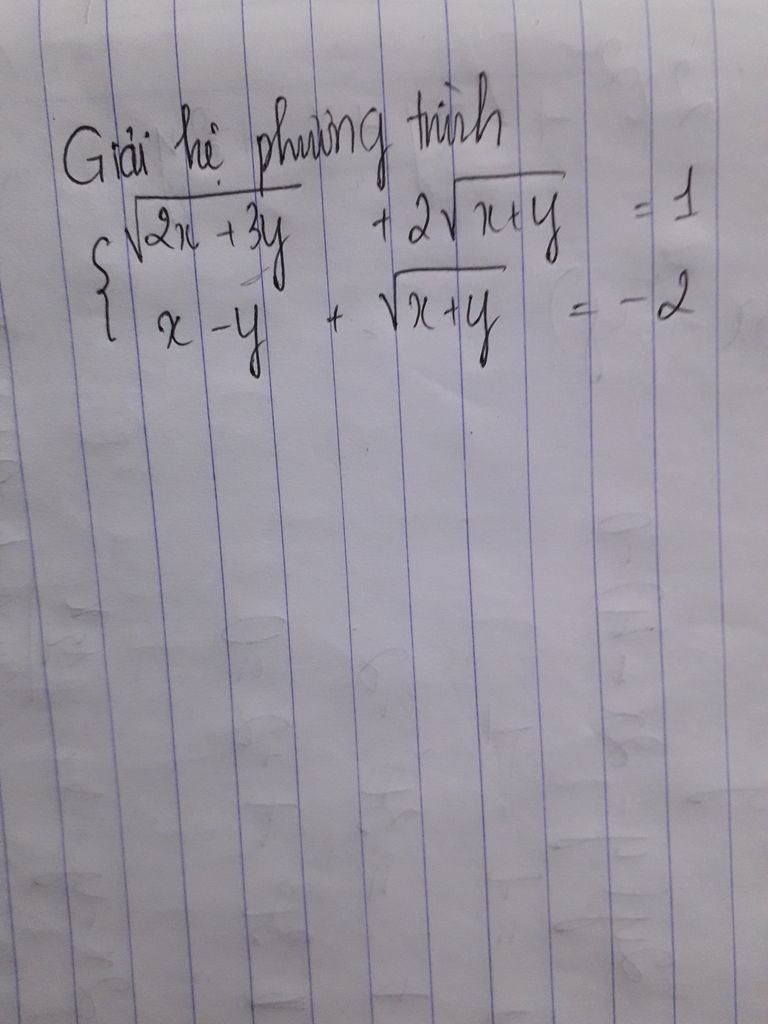 Giải hệ phương trình
{ √(2x + 3y) + 2√(x+y) = 1
x - y + √(x+y) = - 2